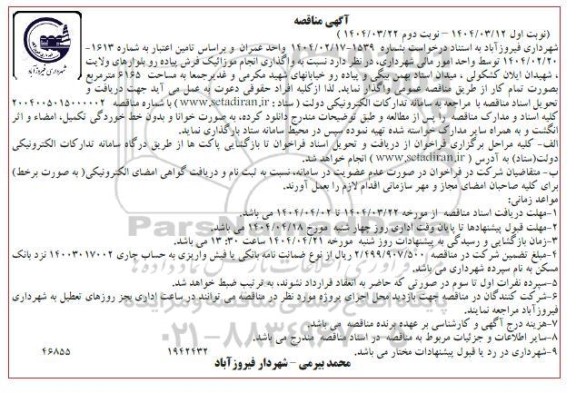 آگهی مناقصه
(نوبت اول ۱۴۰۴/۰۳/۱۲ – نوبت دوم ۱۴۰۴/۰۳/۲۲ )
شهرداری فیروزآباد به استناد درخواست بشماره ۱۵۳۹–۱۴۰۴/۰۲/۱۷ واحد عمران و براساس تامین اعتبار به شماره ۱۶۱۳–
۱۴۰۴/۰۲/۲۰ توسط واحد امور مالی شهرداری، در نظر دارد نسبت به واگذاری انجام موزائیک فرش پیاده رو بلوارهای ولایت
، شهیدان ایلان کشکولی ، میدان استاد بهمن بیگی و پیاده رو خیابانهای شهید مکرمی و غدیرجمعا به مساحت ۶۱۶۵ مترمربع
بصورت تمام کار از طریق مناقصه عمومی واگذار نماید. لذا ازکلیه افراد حقوقی دعوت به عمل می آید جهت دریافت و
تحویل اسناد مناقصه با مراجعه به سامانه تدارکات الکترونیکی دولت ( ستاد : www.setadiran.ir ) با شماره مناقصه ۲۰۰۴۰۰۵۰۱۵۰۰۰۰۰۲
کلیه اسناد و مدارک مناقصه را پس از مطالعه و طبق توضیحات مندرج دانلود کرده، به صورت خوانا و بدون خط خوردگی تکمیل، امضاء و اثر
انگشت و به همراه سایر مدارک خواسته شده تهیه نموده سپس در محیط سامانه ستاد بارگذاری نماید.
الف- کلیه مراحل برگزاری فراخوان از دریافت و تحویل اسناد فراخوان تا بازگشایی پاکت ها از طریق درگاه سامانه تدارکات الکترونیکی
دولت(ستاد) به آدرس ( www.setadiran.ir ) انجام خواهد شد.
ب- متقاضیان شرکت در فراخوان در صورت عدم عضویت در سامانه، نسبت به ثبت نام و دریافت گواهی امضای الکترونیکی(به صورت برخط)
برای کلیه صاحبان امضای مجاز و مهر سازمانی اقدام لازم را بعمل آورند.
مواعد زمانی:
۱-مهلت دریافت اسناد مناقصه از مورخه ۱۴۰۴/۰۳/۲۲ تا ۱۴۰۴/۰۴/۰۲ می باشد.
۲-مهلت قبول پیشنهادها تا پایان وقت اداری روز چهار شنبه مورخ ۱۴۰۴/۰۴/۱۸ می باشد.
۳-زمان بازگشایی و رسیدگی به پیشنهادات روز شنبه مورخه ۱۴۰۴/۰۴/۲۱ ساعت ۱۳:۳۰ می باشد.
۴-مبلغ تضمین شرکت در مناقصه ۲/۴۹۹/۹۰۷/۵۰۰ ریال از نوع ضمانت نامه بانکی یا فیش واریزی به حساب جاری ۱۴۰۰۳۰۱۷۰۰۲ نزد بانک
مسکن به نام سپرده شهرداری می باشد.
۵-سپرده نفرات اول تا سوم در صورتی که حاضر به انعقاد قرارداد نشوند، به ترتیب ضبط خواهد شد.
۶-شرکت کنندگان در مناقصه جهت بازدید محل اجرای پروژه مورد نظر در مناقصه می توانند در ساعت اداری بجز روزهای تعطیل به شهرداری
فیروزآباد مراجعه نمایند.
۷-هزینه درج آگهی و کارشناسی بر عهده برنده مناقصه می باشد.
۸-سایر اطلاعات و جزئیات مربوط به مناقصه در اسناد مناقصه مندرج می باشد.
۹-شهرداری در رد یا قبول پیشنهادات مختار می باشد.
۱۹۴۲۴۳۲
۴۶۸۵۵
محمد بیرمی – شهردار فیروزآباد
شهرداری فیروزآباد
ParsNamadData
۰۲۱-۸۸۳۴۹۶۷۰-۵